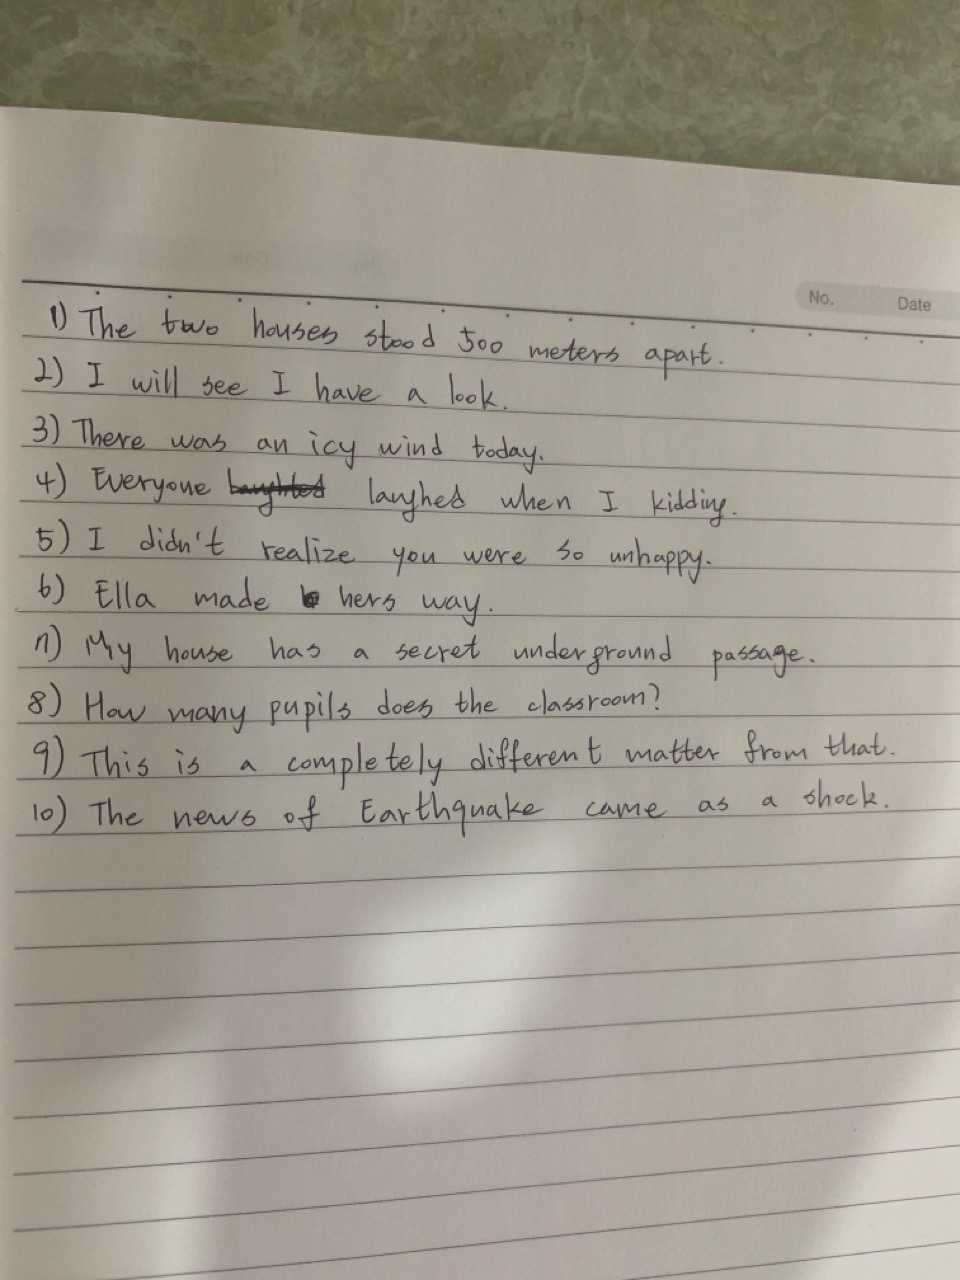 No. Date
1) The two houses stood 500 meters apart.
2) I will see I have a look.
3) There was an icy wind today.
4) Everyone laughed when I kidding.
5) I didn't realize you were so unhappy.
6) Ella made hers way.
7) My house has a secret underground passage.
8) How many pupils does the classroom?
9) This is a completely different matter from that.
10) The news of Earthquake came as a shock.